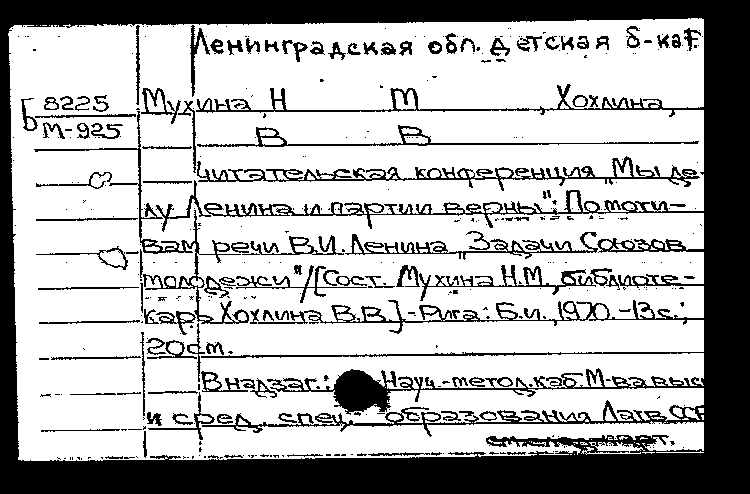 Ленинградская обл. детская б-ка
8225 Мухина Н М , Хохлина,
М-925 В В
Читательская конференция „Мы де-
лу Ленина и партии верны": По моти-
вам речи В.И. Ленина „Задачи Союзов
молодежи"/[Сост. Мухина Н.М., библиоте-
карь Хохлина В.В.] - Рига: Б.и., 1970. - 13с.;
20ст.
В надзаг.: Науч.-метод. каб. М-ва выс
и сред. спец. образования Латв. ССР